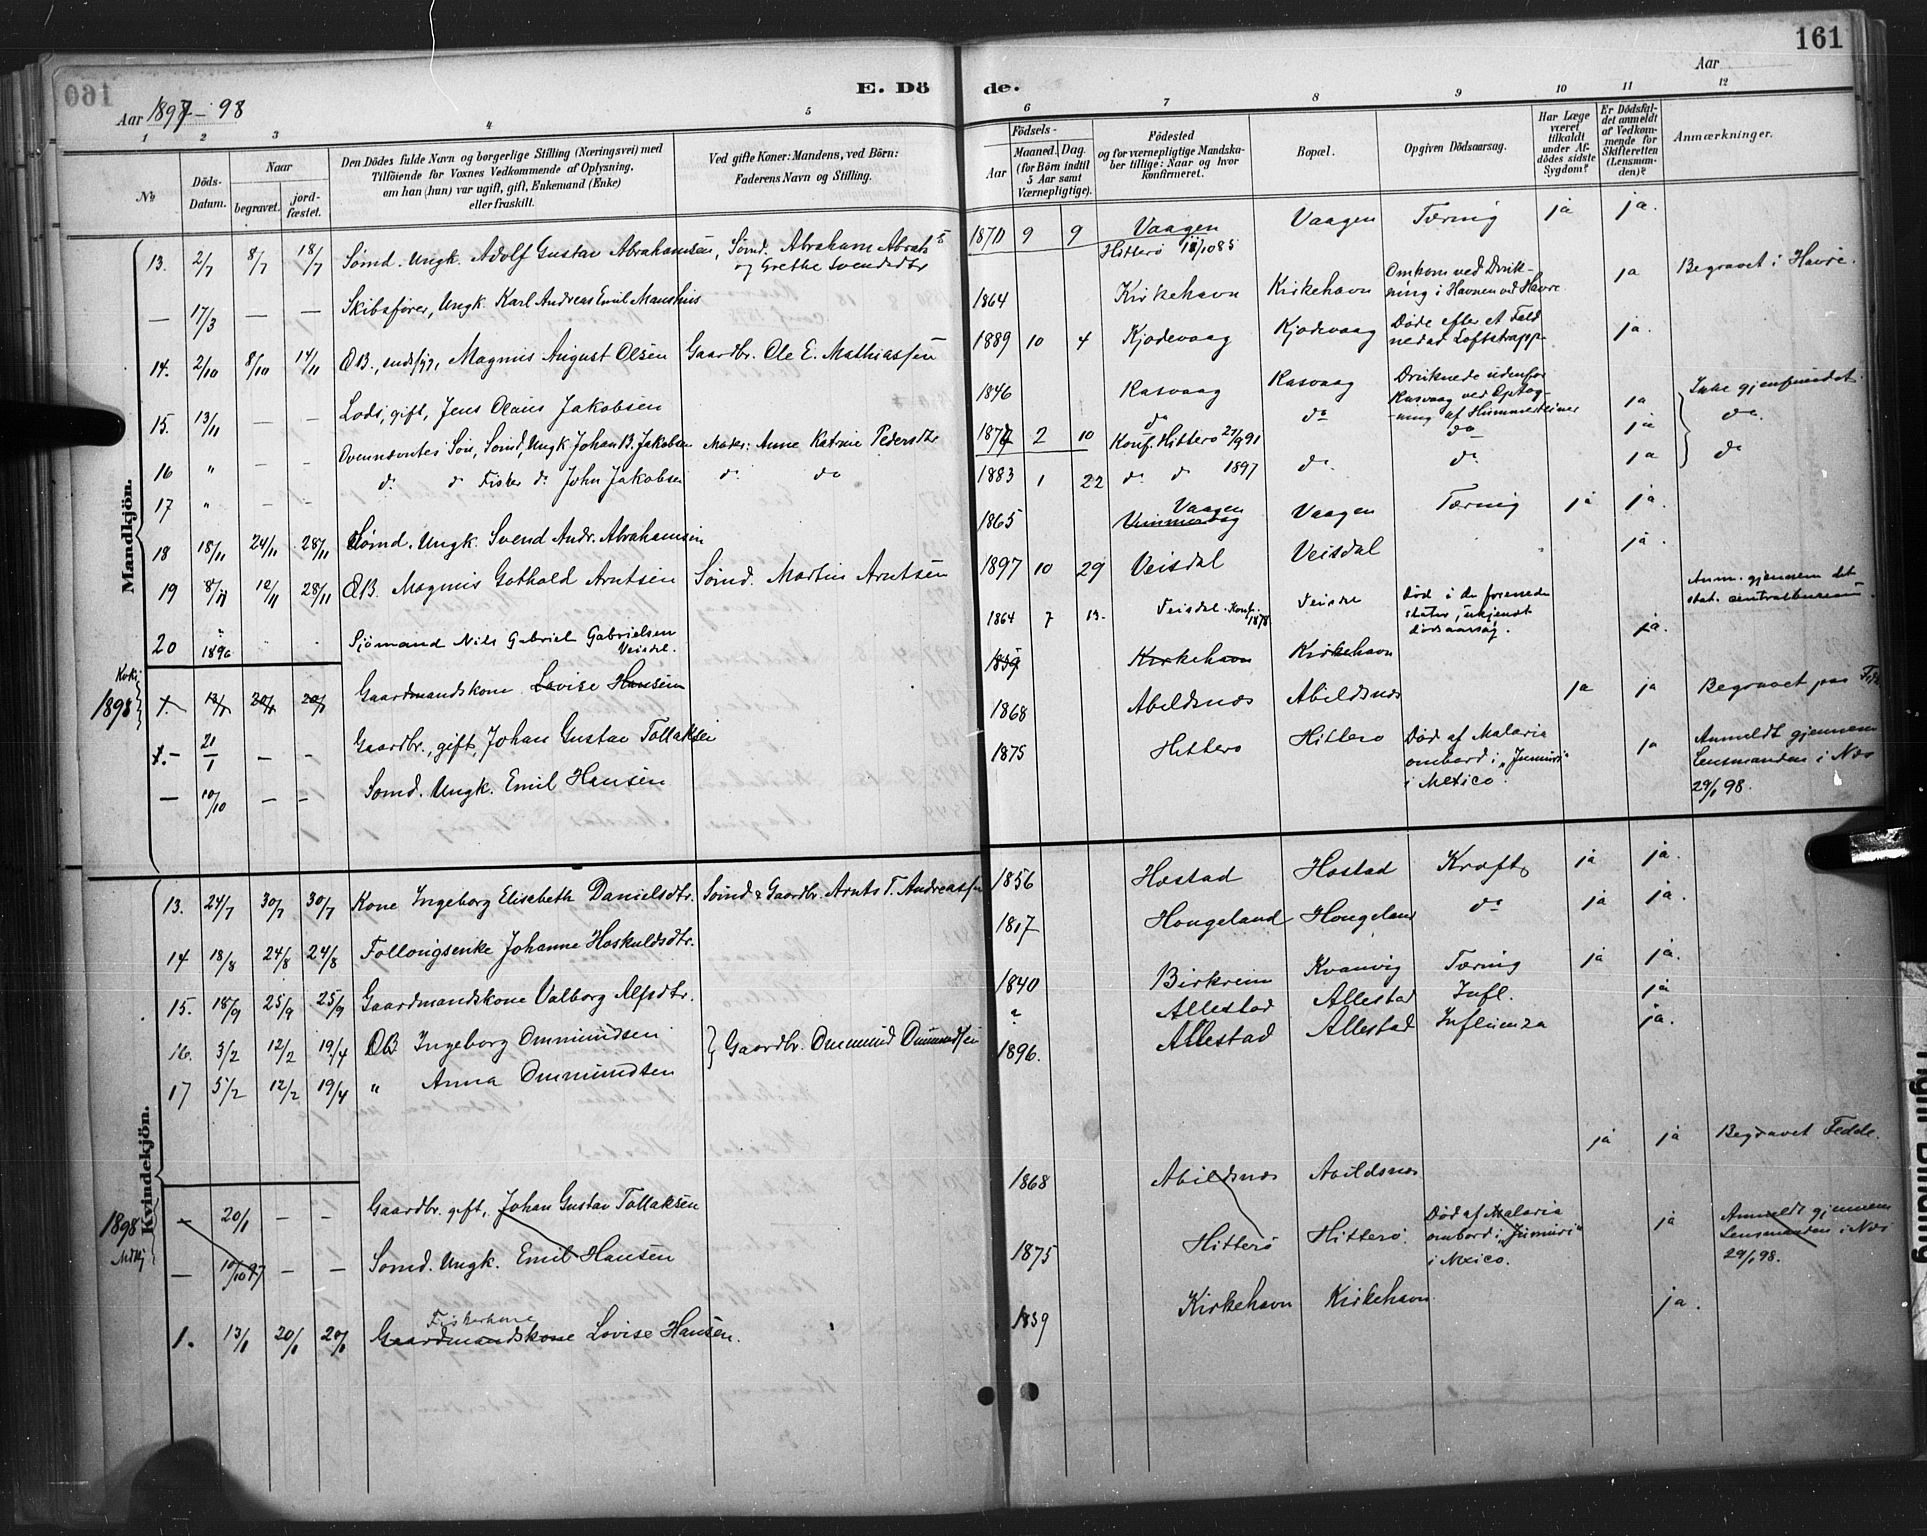 161
E. Dö de.
Aar 1897 - 98
Aar
1 2 3 4 5 6 7 8 9 10 11 12
No
Döds-Datum.
Naar
begravet.
jordfæstet.
Den Dödes fulde Navn og borgerlige Stilling (Næringsvei) med
Tilföiende for Voxnes Vedkommende af Oplysning,
om han (hun) var ugift, gift, Enkemand (Enke)
eller fraskilt.
Ved gifte Koner: Mandens, ved Börn:
Faderens Navn og Stilling.
Födsels-
Aar
Maaned. Dag.
(for Börn indtil
5 Aar samt
Værnepligtige).
Födested
og for værnepligtige Mandska-
ber tillige: Naar og hvor
konfirmeret.
Bopæl.
Opgiven Dödsaarsag.
Har Læge
været
tilkaldt
under Af-
dödes sidste
Sygdom?
Er Dödsfal-
det anmeldt
af Vedkom-
mende for
Skifteretten
(Lensman-
den)?
Anmærkninger.
Mandkjön.
13. 2/7 8/7 18/7 Sömd. Ungk. Adolf Gustav Abrahamsen, Sömd. Abraham Abrahs og Grethe Svendsdtr 1870 9 9 Vaagen Hitterö 18/10 85 Vaagen Tæring ja ja.
— 17/3 — — Skibsfører, Ungk. Karl Andreas Emil 1864 Kirkehavn Kirkehavn Omkom ved Drukning i Havnen ved Havre ja Begravet i Havre.
14. 2/10 8/10 14/11 ÆB., Magnus August Olsen Gaardbr. Ole E. Mathiassen 1889 10 4 Kjødevaag Kjødevaag Døde efter et Fald ned ad Loftstrapp- ja.
15. 13/11 — — Lods, gift, Jens Olaus Jakobsen 1846 Rasvaag Rasvaag Druknede udenfor Rasvaag ved Optagning af Hummerteiner ja Ikke gjenfundet.
16 " - - Ovennævntes Søn, Sømd, Ungk. Johan B. Jakobsen Moder: Anne Katrine Pedersdtr 1877 2 10 do Konf. Hitterø 27/9 91 do do ja do.
17 " - - do do Fisker do John Jakobsen do do 1883 1 22 do do 1897 do do ja do
18 18/11 24/11 28/11 Sømd. Ungk. Svend Andr. Abrahamsen 1865 Vaagen Vaagen Tæring ja ja.
19 8/11 12/11 28/11 ÆB. Magnus Gothold Arntsen Sømd. Martin Arntsen 1897 10 29 Veisdal Veisdal ja.
20 1896 Sjömand Nils Gabriel Gabrielsen Veisdal. 1864 7 13. Veisdal. Konf. 1878 Veisdal død i de forenede stater, ukjendt dødsaarsag. ja. Anm. gjennem det stat. centralbureau.
1898
1. 13/1 20/1 20/1 Gaardmandskone Lovise Hansen 1839 Kirkehavn Kirkehavn
1. - 21/1 — — Gaardbr., gift, Johan Gustav Tollaksen 1868 Abeldsnæs Abildsnæs ja ja Begravet paa
— 10/10 — — Sømd. Ungk. Emil Hansen 1875 Hitterø Hitterø Død af Malaria ombord i „Jumuri" i Mexico. ja Anmeldt gjennem Lensmanden i Næs 29/1 98.
Kvindekjön.
13. 24/7 30/7 30/7 Kone Ingeborg Elisebeth Danielsdtr. Sömd & Gaardbr. Arnts T. Andreassen 1856 Hæstad Hæstad Kræft ja ja.
14 18/8 24/8 24/8 Føllougsenke Johanne Hoskuldsdtr. 1817 Hougeland Hougeland do ja ja.
15. 18/9 25/9 25/9 Gaardmandskone Valborg Alfsdtr. 1840 Birkrem Kvanvig Tæring ja ja.
16. 3/2 12/2 19/4 ÆB Ingeborg Ommundsen } Gaardbr. Ommund Ommundsen ? Allestad Allestad Infl. ja
17 5/2 12/2 19/4 " Anna Ommundsen 1896. Allestad Allestad Influenza ja.
1898
— 20/1 — — Gaardbr. gift, Johan Gustav Tollaksen 1868 Abildsnæs Abildsnæs ja ja Begravet Fedde.
— 10/10 97 — — Sømd. Ungk. Emil Hansen 1875 Hitterø Hitterø. Død af Malaria ombord i „Jumuri" i Mexico. ja Anmeldt gjennem Lensmanden i Næs 29/1 98.
1. 13/1 20/1 20/1 Fiskerkone Gaardmandskone Lovise Hansen. 1839 Kirkehavn Kirkehavn. ja.